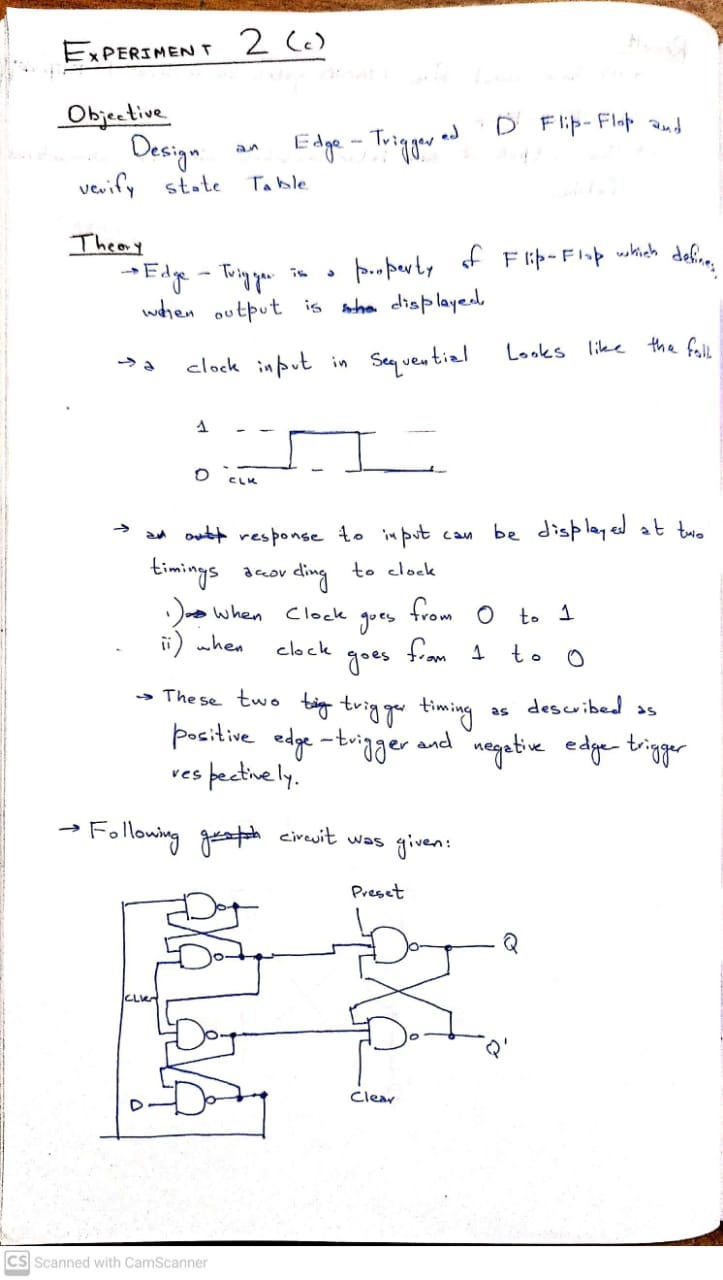 EXPERIMENT 2 (c)
Objective
Design an Edge - Triggered D Flip-Flop and
verify state Table
Theory
→ Edge - Trigger is a property of Flip-Flop which defines
when output is displayed
→ a clock input in Sequential Looks like the foll
1
0 CLK
→ an response to input can be displayed at two
timings according to clock
i) When Clock goes from 0 to 1
ii) when clock goes from 1 to 0
→ These two trigger timing as described as
positive edge-trigger and negative edge trigger
respectively.
→ Following circuit was given:
Preset
Q
CLK
Q'
D
Clear
CS Scanned with CamScanner